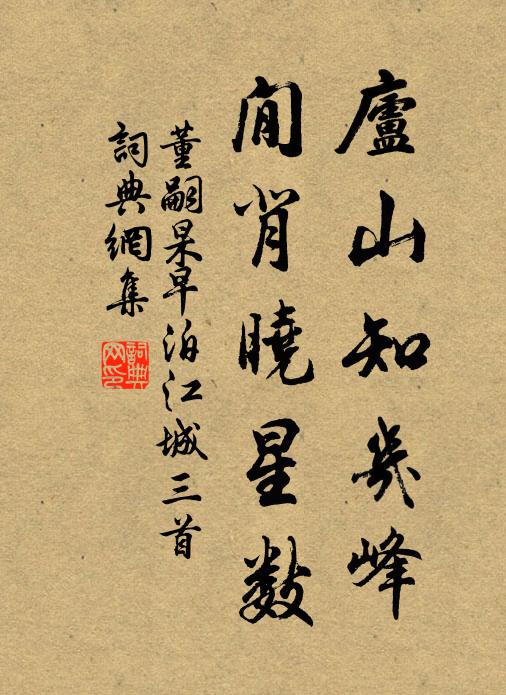 廬山知幾峰
閒背曉星數
董嗣杲早泊江城三首
詞典網集
詞典
网印